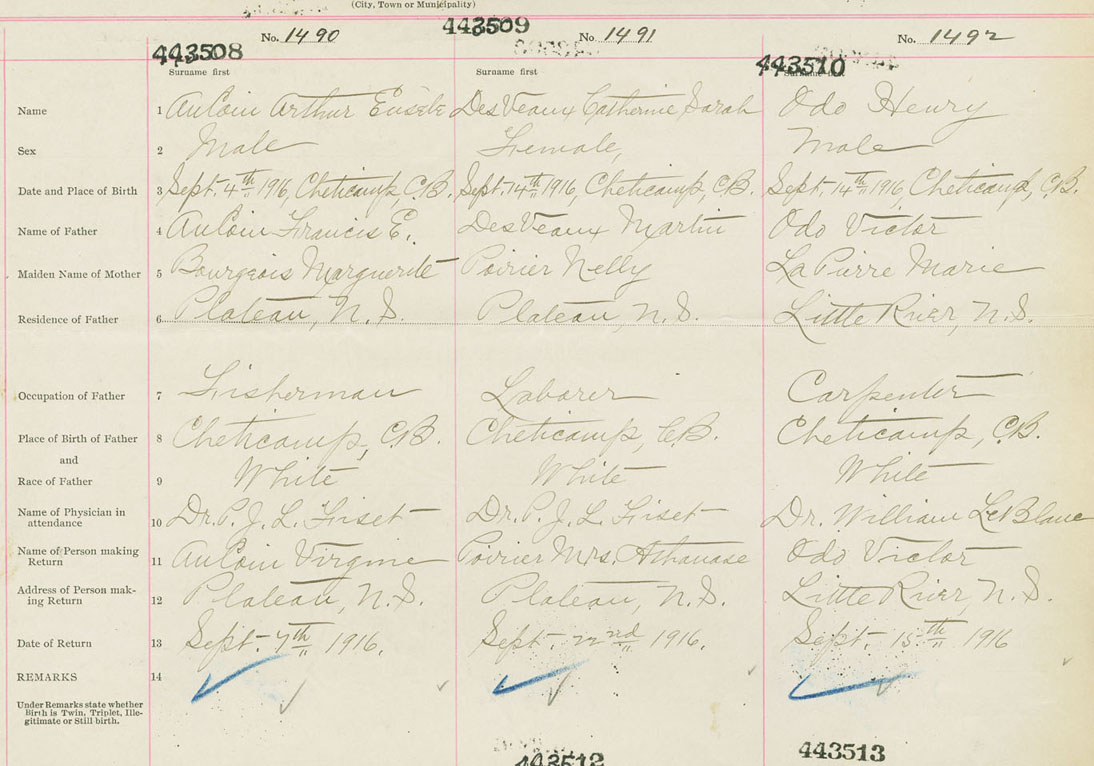 (City, Town or Municipality)
No. 1490 No. 1491 No. 1492
443508 443509 443510
Surname first Surname first Surname first
Name 1 AuCoin Arthur Eusèbe DesVeaux Catherine Sarah Odo Henry
Sex 2 Male Female, Male
Date and Place of Birth 3 Sept. 4th 1916, Cheticamp, C.B. Sept. 14th 1916, Cheticamp, C.B. Sept. 14th 1916, Cheticamp, C.B.
Name of Father 4 AuCoin Francis E. DesVeaux Martin Odo Victor
Maiden Name of Mother 5 Bourgeois Marguerite Poirier Nelly LaPierre Marie
Residence of Father 6 Plateau, N.S. Plateau, N.S. Little River, N.S.
Occupation of Father 7 Fisherman Laborer Carpenter
Place of Birth of Father 8 Cheticamp, C.B. Cheticamp, C.B. Cheticamp, C.B.
and
Race of Father 9 White White White
Name of Physician in
attendance 10 Dr. P. J. L. Fiset Dr. P. J. L. Fiset Dr. William LeBlanc
Name of Person making
Return 11 AuCoin Virginie Poirier Mrs. Athanase Odo Victor
Address of Person mak-
ing Return 12 Plateau, N.S. Plateau, N.S. Little River, N.S.
Date of Return 13 Sept. 7th 1916. Sept. 22nd 1916. Sept. 15th 1916
REMARKS 14
Under Remarks state whether
Birth is Twin, Triplet, Ille-
gitimate or Still birth.
443512 443513